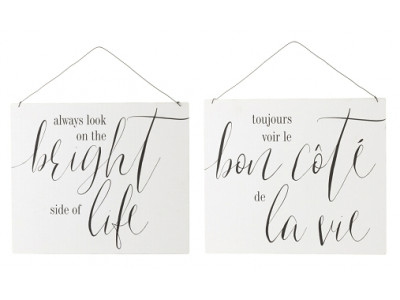 always look
on the
bright
side of
life
toujours
voir le
bon côté
de
la vie